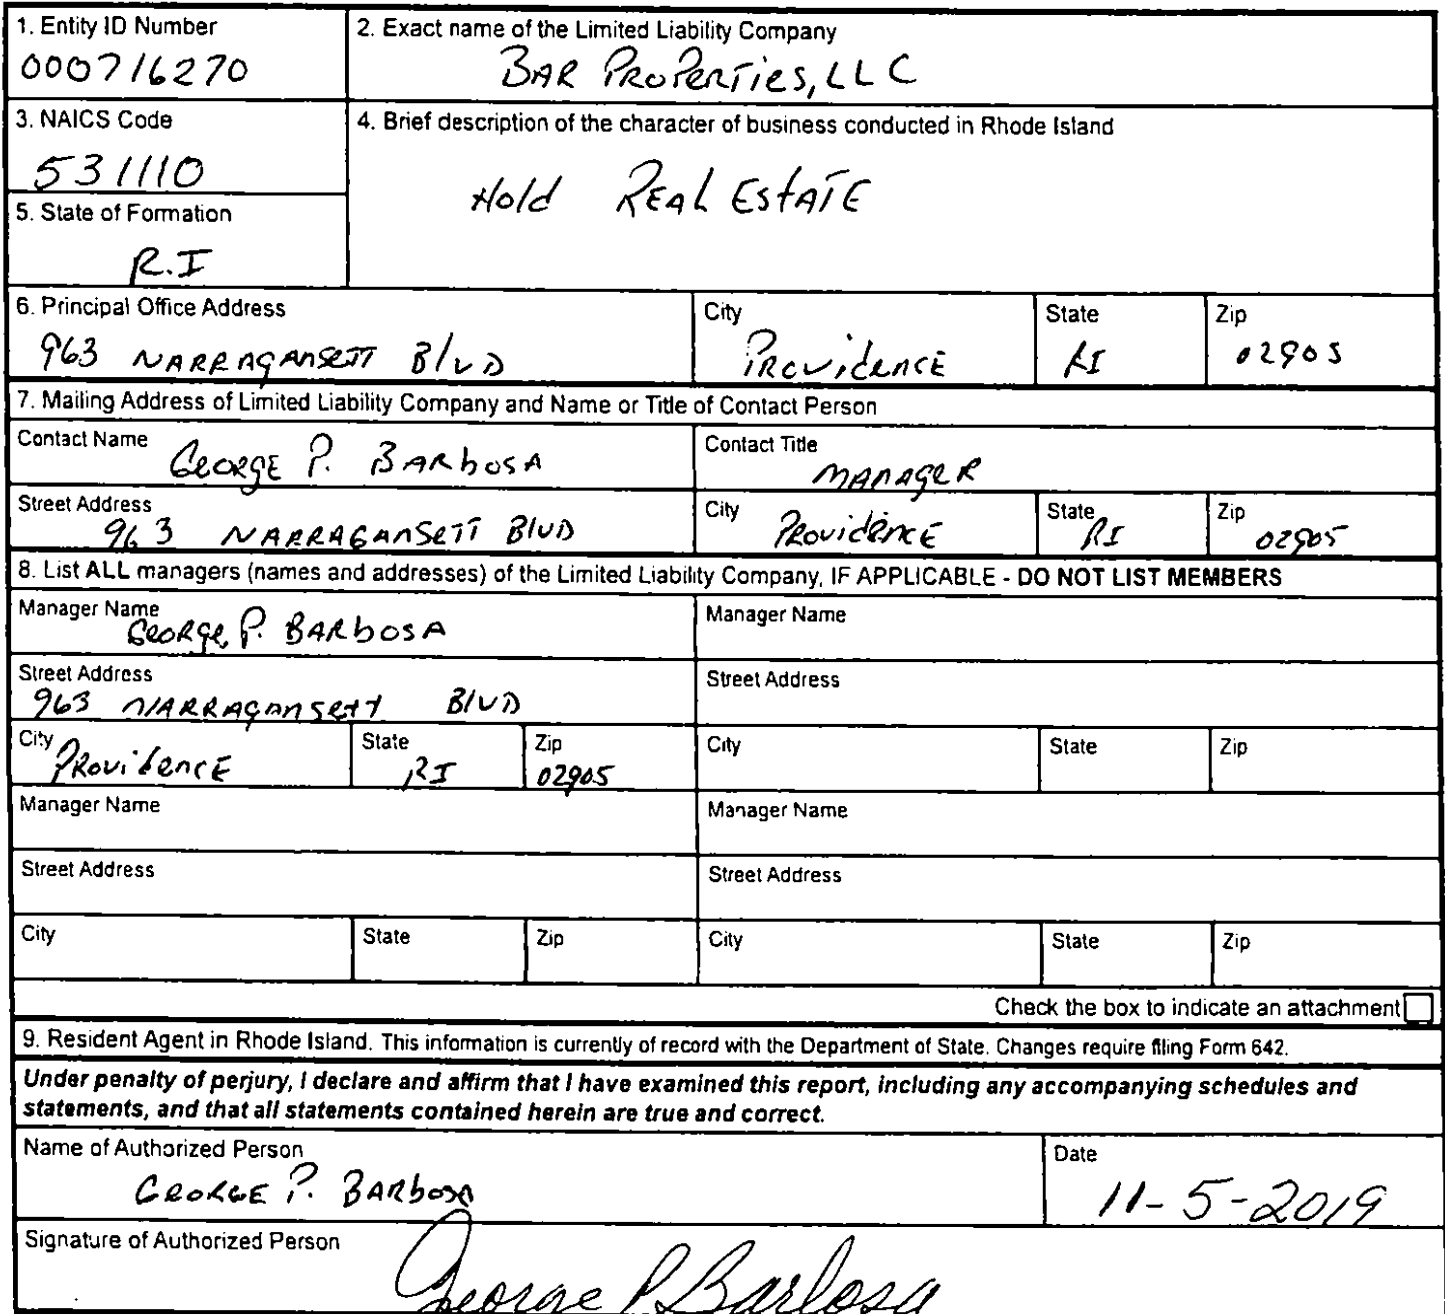 1. Entity ID Number
000716270
2. Exact name of the Limited Liability Company
BAR PROPERTIES, LLC
3. NAICS Code
531110
4. Brief description of the character of business conducted in Rhode Island
Hold REAL ESTATE
5. State of Formation
R.I
6. Principal Office Address
963 NARRAGANSETT BLVD
City
PROVIDENCE
State
RI
Zip
02905
7. Mailing Address of Limited Liability Company and Name or Title of Contact Person
Contact Name
GEORGE P. BARBOSA
Contact Title
MANAGER
Street Address
963 NARRAGANSETT BLVD
City
PROVIDENCE
State
RI
Zip
02905
8. List ALL managers (names and addresses) of the Limited Liability Company, IF APPLICABLE - DO NOT LIST MEMBERS
Manager Name
GEORGE P. BARBOSA
Manager Name
Street Address
963 NARRAGANSETT BLVD
Street Address
City
PROVIDENCE
State
RI
Zip
02905
City
State
Zip
Manager Name
Manager Name
Street Address
Street Address
City
State
Zip
City
State
Zip
Check the box to indicate an attachment
9. Resident Agent in Rhode Island. This information is currently of record with the Department of State. Changes require filing Form 642.
Under penalty of perjury, I declare and affirm that I have examined this report, including any accompanying schedules and
statements, and that all statements contained herein are true and correct.
Name of Authorized Person
GEORGE P. BARBOSA
Date
11-5-2019
Signature of Authorized Person
George P Barbosa